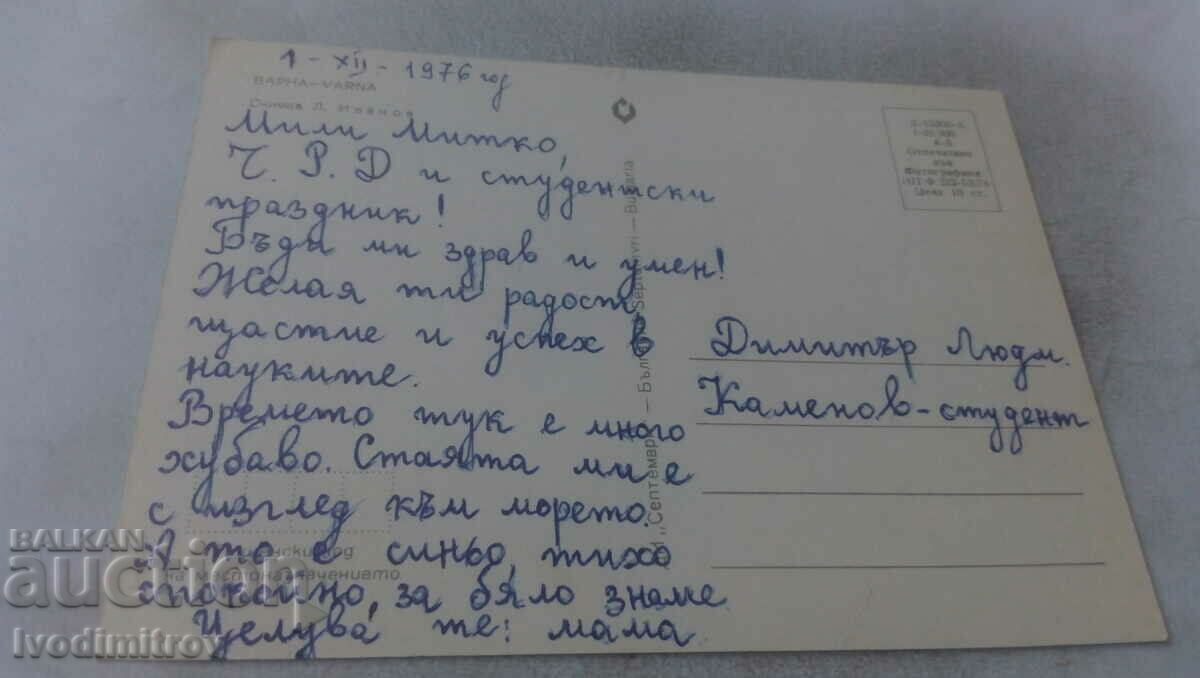 1 - XII - 1976 год
ВАРНА—VARNA
Снимка Л. Иванов
Мили Митко,
Ч. Р. Д и студентски
праздник!
Бъди ми здрав и умен!
Желая ти радост,
щастие и успех в
науките.
Времето тук е много
хубаво. Стаята ми е
с изглед към морето.
А то е синьо, тихо
спокойно, за бяло знаме
Целува те: мама
Димитър Людм.
Каменов-студент
Септември — Бълг
Septemvri — Bulgaria
на местоназначението
Отпечатано
във
Фотографика
Цена 10 ст.
BALKAN
auction
Ivodimitrov